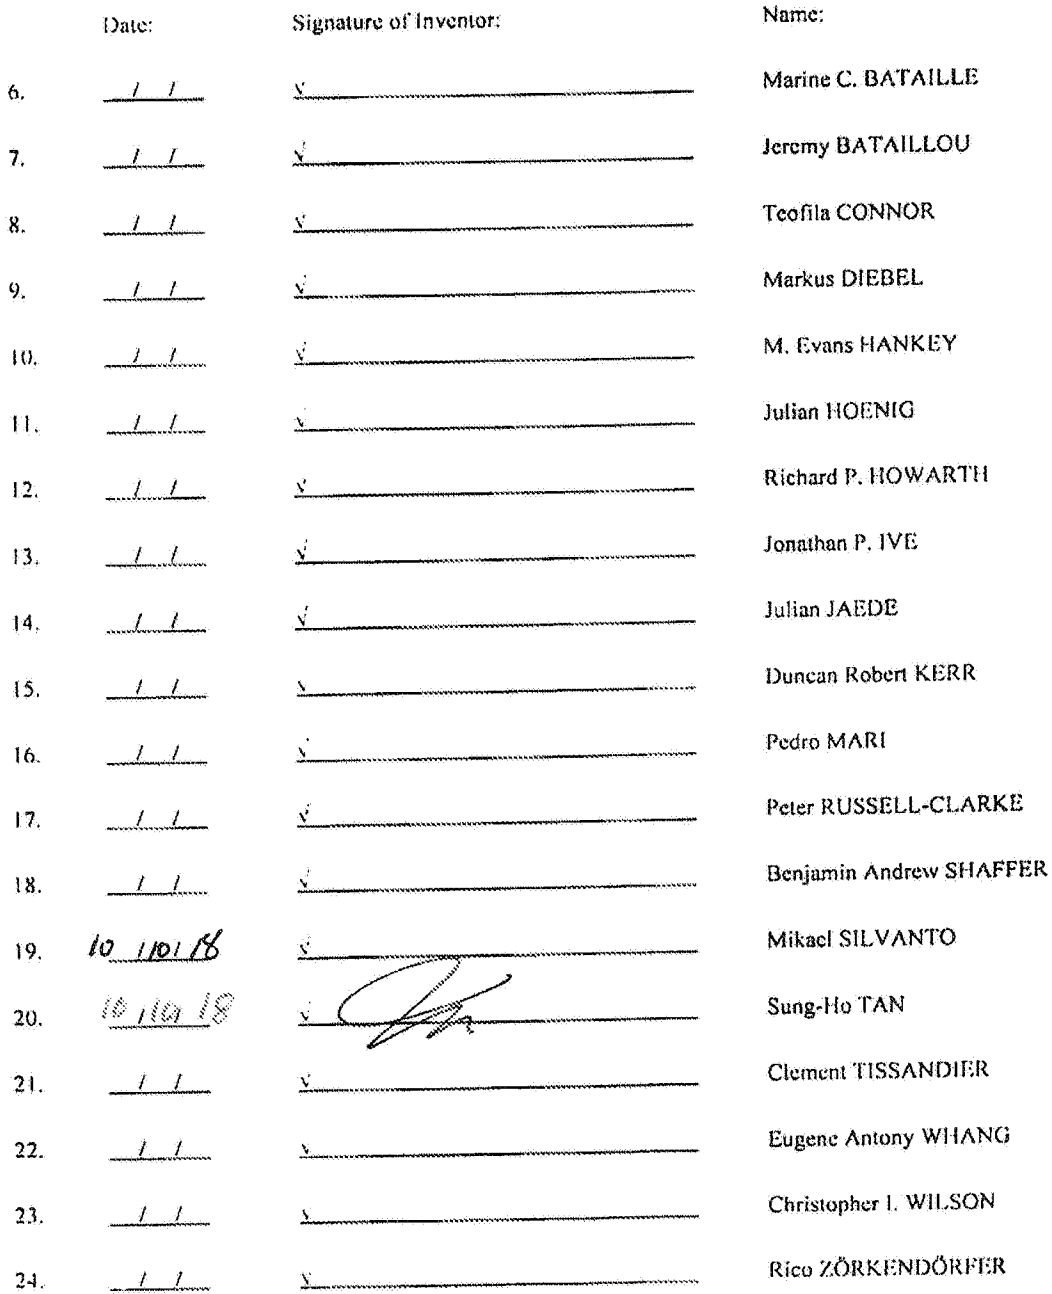 Date: Signature of Inventor: Name:
6. / / √ Marine C. BATAILLE
7. / / √ Jeremy BATAILLOU
8. / / √ Teofila CONNOR
9. / / √ Markus DIEBEL
10. / / √ M. Evans HANKEY
11. / / √ Julian HOENIG
12. / / √ Richard P. HOWARTH
13. / / √ Jonathan P. IVE
14. / / √ Julian JAEDE
15. / / √ Duncan Robert KERR
16. / / √ Pedro MARI
17. / / √ Peter RUSSELL-CLARKE
18. / / √ Benjamin Andrew SHAFFER
19. 10 / 10 / 18 √ Mikael SILVANTO
20. 10 / 10 / 18 √ Sung-Ho TAN
21. / / √ Clement TISSANDIER
22. / / √ Eugene Antony WHANG
23. / / √ Christopher I. WILSON
24. / / √ Rico ZÖRKENDÖRFER